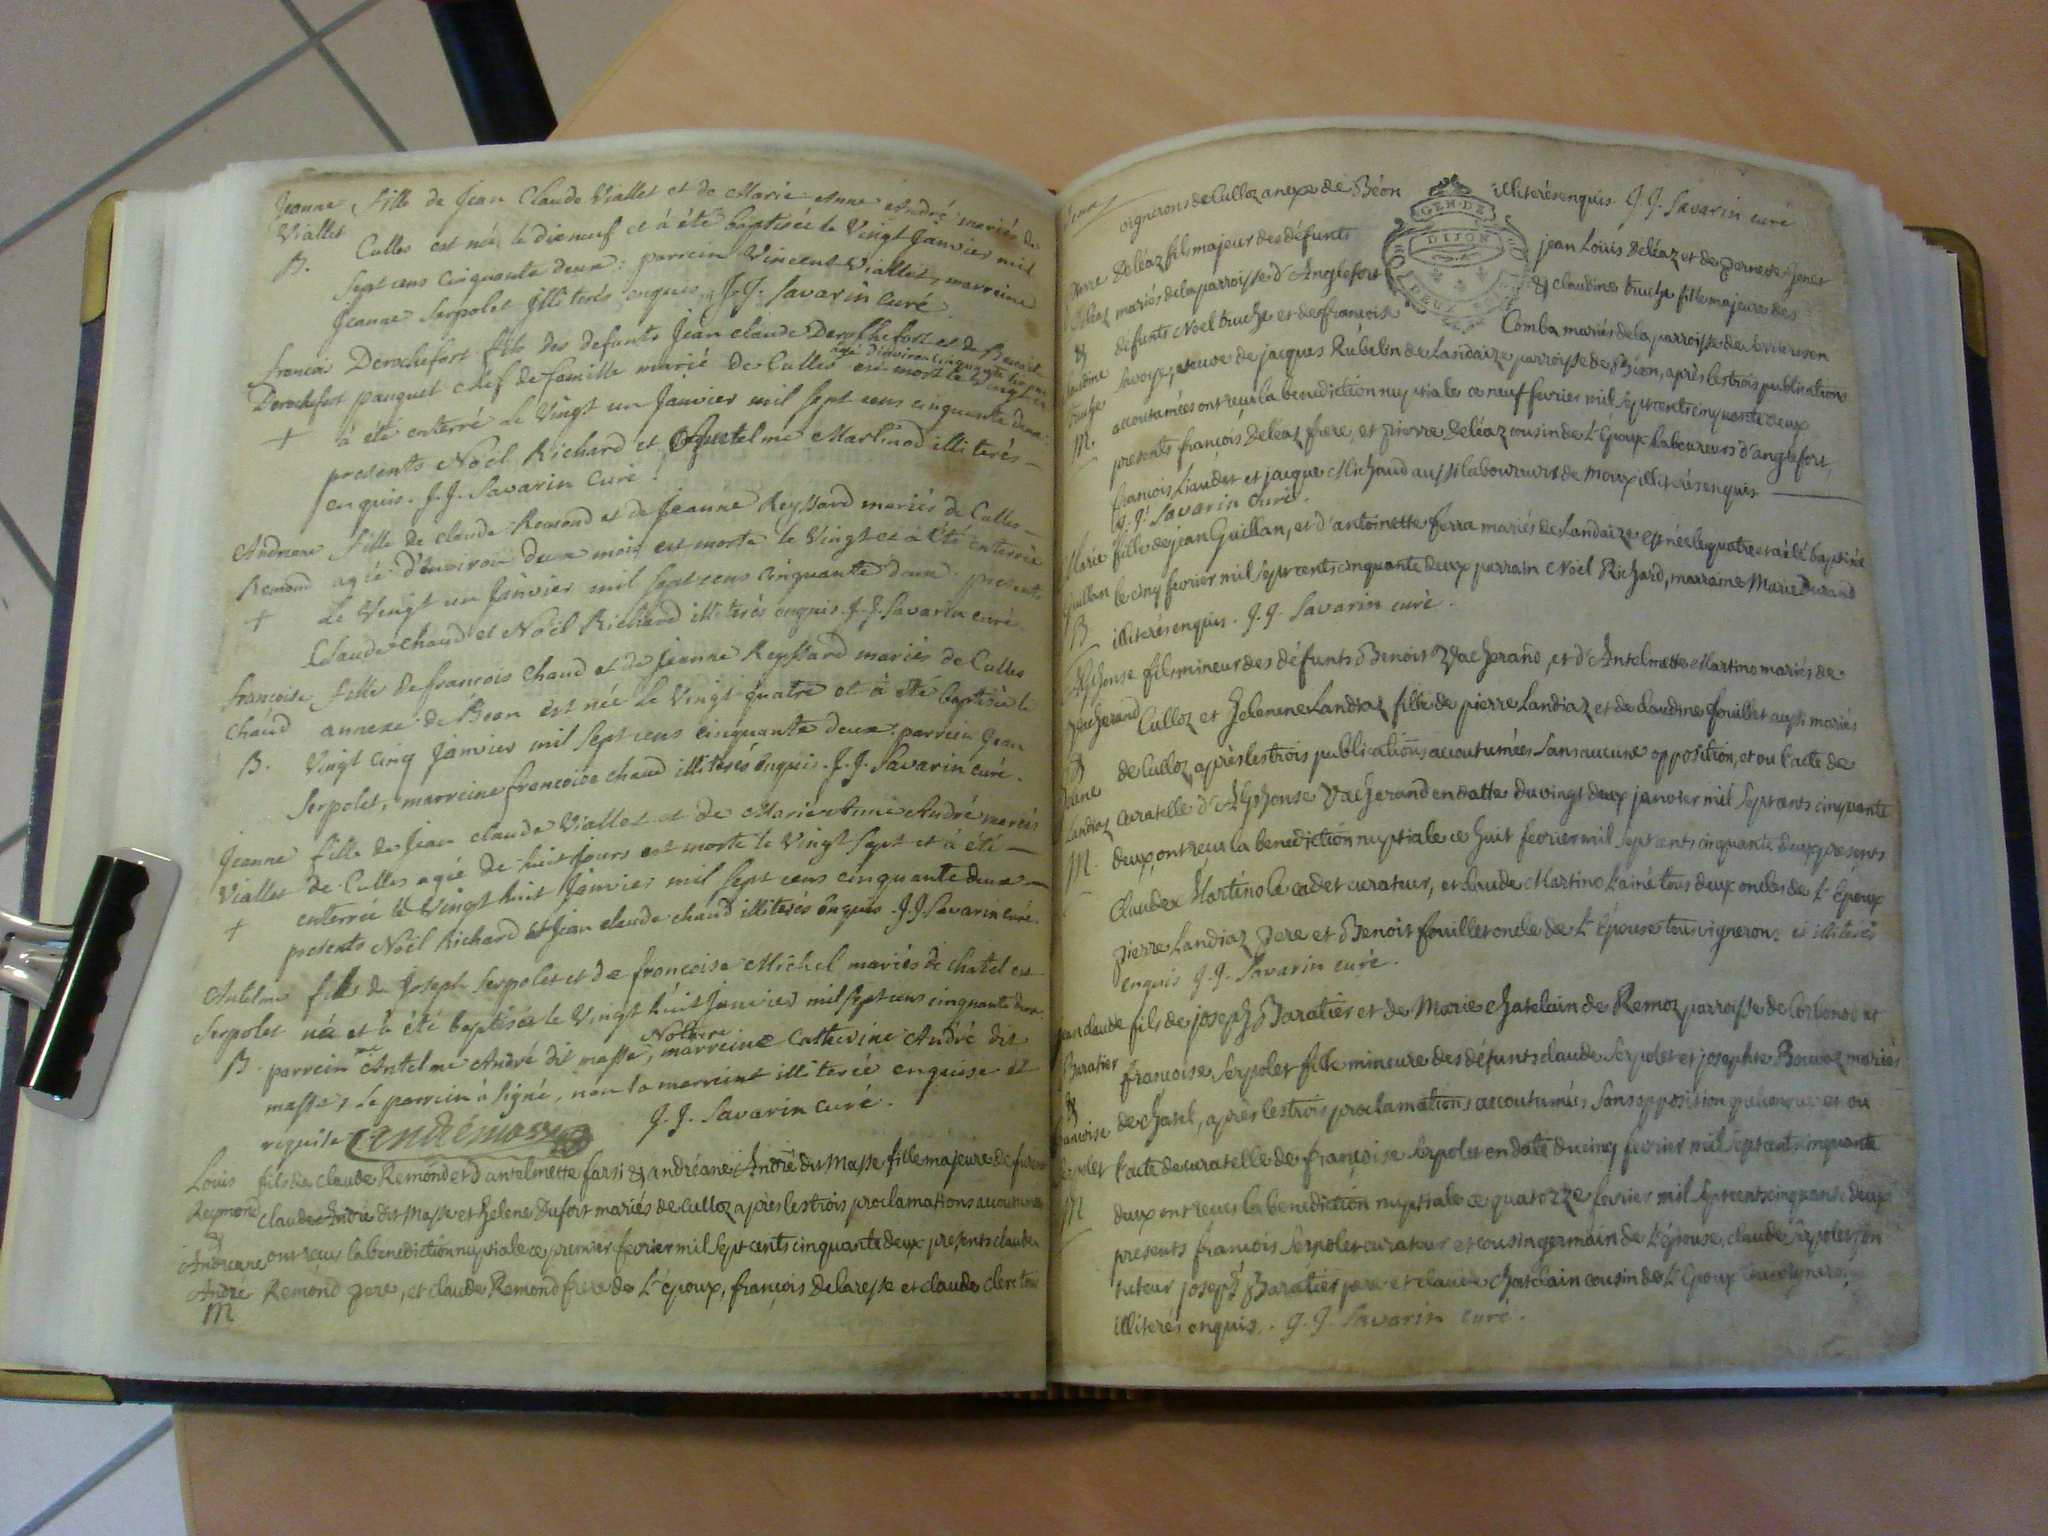 Jeanne fille de Jean Claude Viallet et de Marie Anne André mariés de
Viallet Culles est née le dixneuf et à été baptisée le Vingt Janvier mil
B. Sept cens Cinquante deux: parrein Vincent Viallet, marreine
Jeanne Serpolet illiterés enquis. J. J. Savarin Curé
francois Derochefort fils des defunts Jean claude Derochefort et de
agé d'environ cinquante
Derochefort pauguet chef de famille marié de Culles est mort le Vingt
+ à été enterré le Vingt un Janvier mil Sept cens cinquante deux
presents Noël Richard et Martinod illiterés
enquis. J. J. Savarin Curé
Andreane fille de claude Remond et de Jeanne Reyssard mariés de Culles
Remond agée d'environ deux mois est morte le Vingt et à été enterrée
+ Le Vingt un Janvier mil Sept cens cinquante deux presents
Claude chaud et Noël Richard illiterés enquis. J. J. Savarin curé
francoise fille de francois Chaud et de Jeanne Reyssard mariés de Culles
Chaud annexe de Beon est née le Vingt quatre et à été baptisée le
B. Vingt Cinq Janvier mil Sept cens cinquante deux. parrein Jean
Serpolet, marreine francoise chaud illiterés enquis. J. J. Savarin curé.
Jeanne fille de Jean claude Viallet et de Marie Anne André mariés
Viallet de Culles agée de huit jours est morte le Vingt Sept et à été
+ enterrée le Vingt huit Janvier mil Sept cens cinquante deux
presents Noël Richard et Jean claude chaud illiterés enquis. J. J. Savarin curé.
Antelme fils de Joseph Serpolet et de francoise Michel mariés de chatel est
Serpolet né et à été baptisée le Vingt huit Janvier mil Sept cens cinquante deux.
Nottaire
B. parrein Antelme André dit masse, marreine Catherine André dit
masse, le parrein à signé, non la marreine illiterée enquise et
requise andré masse J. J. Savarin Curé.
Louis fils de claude Remond et d'antelmette farsi & andréane André dit Masse fille majeure de
Remond claude André dit Masse et helene Dufort mariés de culloz après les trois proclamations accoutumées
& Andreane ont reçus la benediction nuptiale ce premier fevrier mil sept cents cinquante deux presents claude
André Remond pere, et claude Remond frere de l'Epoux, françois delaresse et claude clerc tous
M
vignerons de Culloz anexe de Béon illiterés enquis J. J. Savarin curé
GEN. DE DIJON
DEUX
Deléaz fils majeur des défunts jean Louis Deléaz et de
Deléaz mariés de la parroisse d'Anglefort & claudine truche fille majeure des
& défunts Noel truche et de françoise Comba mariés de la parroisse de
Savoye, veuve de jacques Rubelin de Landaize parroisse de Béon, après les trois publications
truche accoutumées ont reçu la benediction nuptiale ce neuf fevrier mil sept cents cinquante deux
M. presents françois Deléaz frere, et pierre Deléaz cousin de l'Epoux Laboureurs d'anglefort,
francois Liaudet et jacque Michaud aussi laboureurs de moux illiterés enquis
J. J. Savarin Curé.
Marie fille de jean Guillan, et d'antoinette ferra mariés de Landaize est née le quatre et a été baptisée
Guillan le cinq fevrier mil sept cents cinquante deux parrain Noel Richard, marraine Marie Durand
B illiterés enquis. J. J. Savarin curé.
Alphonse fils mineur des défunts Benoit Vacherand, et d'Antelmette Martino mariés de
Vacherand Culloz et helene Landraz fille de pierre Landraz et de claudine fouillet aussi mariés
& de Culloz, après les trois publications accoutumées sans aucune opposition, et ou l'acte de
Landraz curatelle d'Alphonse Vacherand en datte du vingt deux janvier mil sept cents cinquante
M. deux, ont reçu la benediction nuptiale ce huit fevrier mil sept cents cinquante deux presents
Claude Martino le cadet curateur, et claude Martino l'ainé tous deux oncles de l'Epoux
pierre Landraz pere et Benoit fouillet oncle de l'Epouse tous vignerons et illiterés
enquis J. J. Savarin curé.
jean claude fils de joseph Baratier et de Marie chatelain de Remoz parroisse de Corbonod et
Baratier françoise Serpolet fille mineure des défunts claude Serpolet et josephte Bouvaz mariés
& françoise de chatel, après les trois proclamations accoutumées sans opposition quelconque et ou
Serpolet l'acte de curatelle de françoise Serpolet en date du cinq fevrier mil sept cents cinquante
M deux ont reçus la benediction nuptiale ce quatorze fevrier mil sept cents cinquante deux
presents francois Serpolet curateur et cousin germain de l'épouse, claude Serpolet son
tuteur joseph Baratier pere et claude chatelain cousin de l'Epoux
illiterés enquis. J. J. Savarin curé.